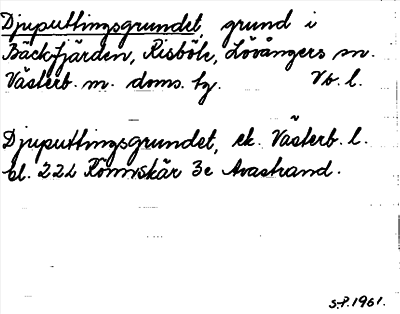 Djuputtingsgrundet, grund i
Bäckfjärden, Risböle, Lövångers sn.
Västerb. n. doms. tg. Vb. l.
Djuputtingsgrundet, ek. Västerb. l.
bl. 22L Rönnskär 3e Avastrand.
S.P. 1961.